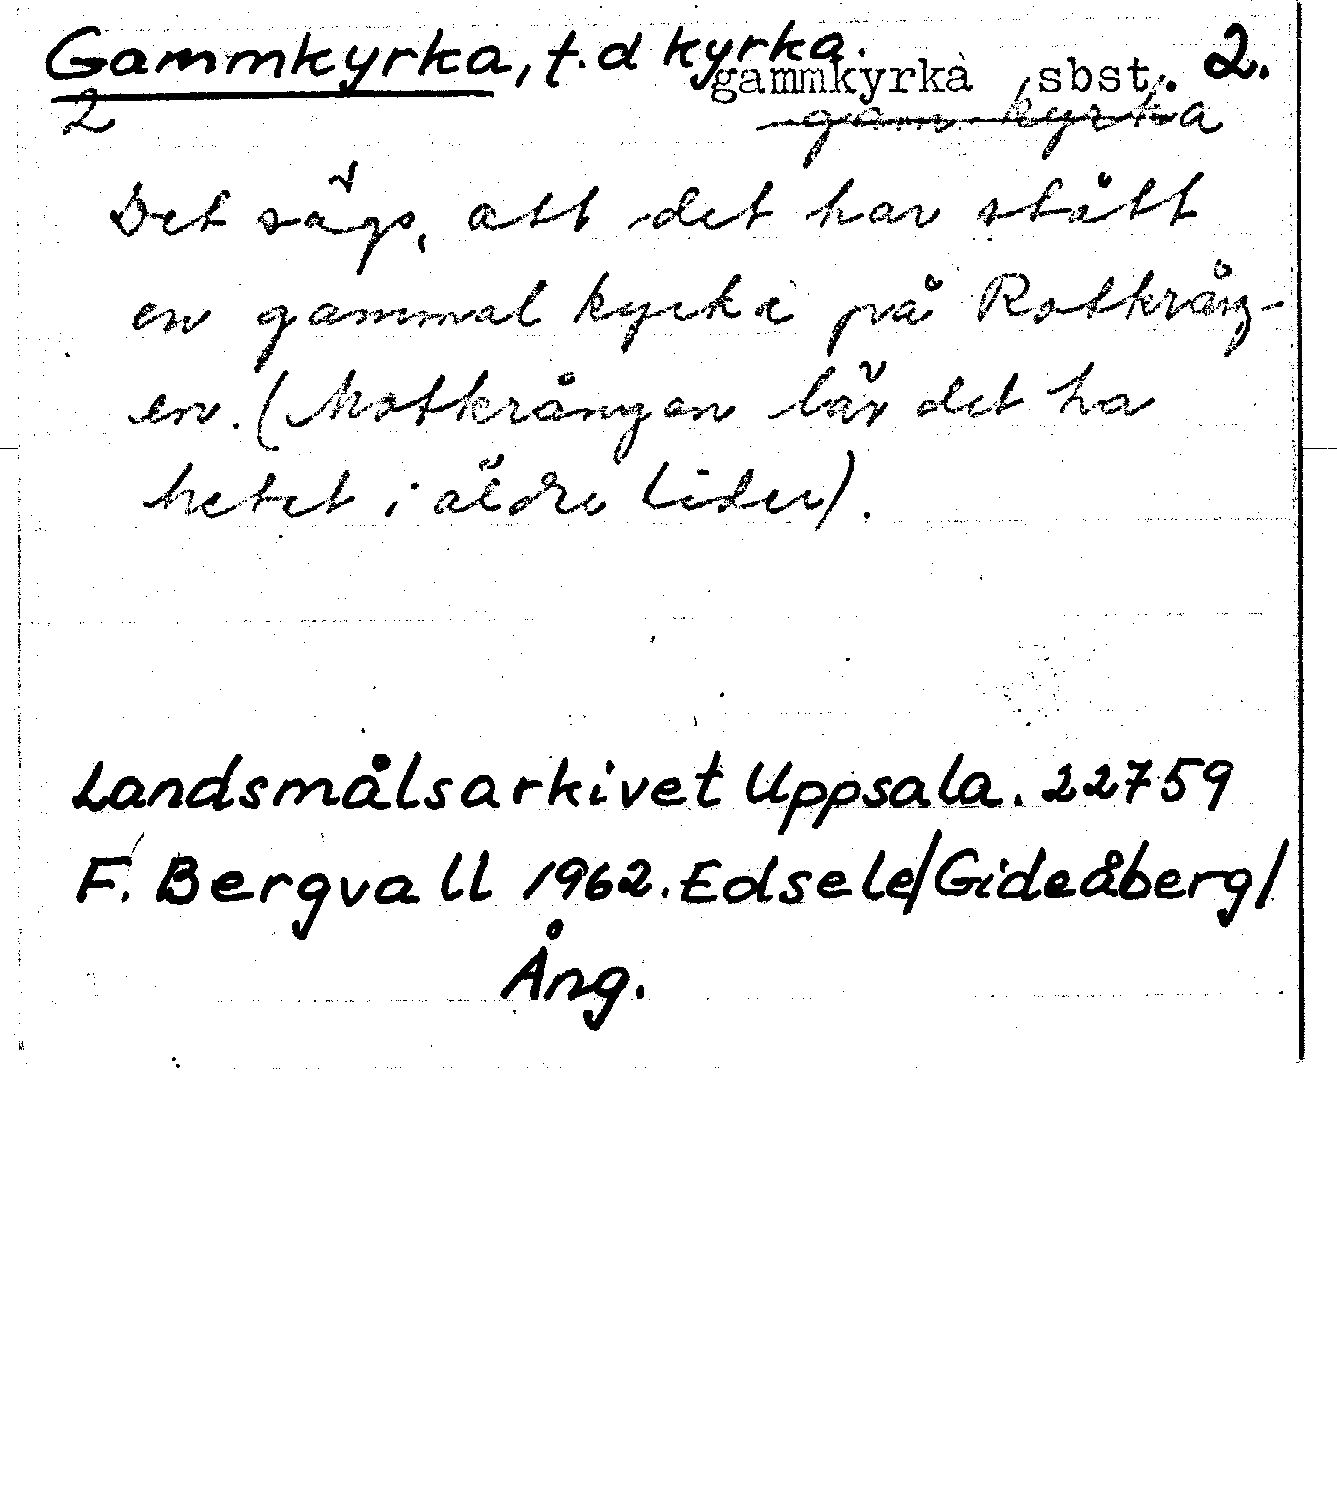 Gammkyrka, t.d kyrka. 2.
gammkyrka sbst.
2
gam-kyrka
Det sägs, att det har stått
en gammal kyrka på Rotkrång-
en. (Motkrången lär det ha
hetat i äldre tider).
Landsmålsarkivet Uppsala. 22759
F. Bergvall 1962. Edsele/Gideåberg/
Ång.